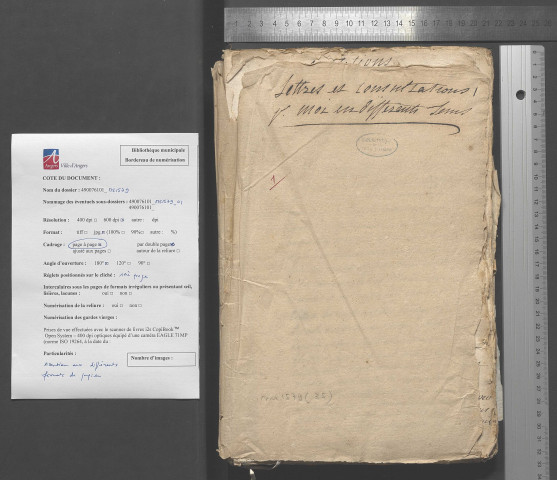 Bibliothèque municipale
Bordereau de numérisation
Angers Ville d'Angers
COTE DU DOCUMENT :
Nom du dossier : 490076101_ MS1579
Nommage des éventuels sous-dossiers : 490076101_ MS1579_01
490076101_
Résolution : 400 dpi □ 600 dpi autre : dpi
Format : tiff □ jpg (100% □ 90% □ autre : %)
Cadrage : page à page par double page
ajusté aux pages □ autour de la reliure □
Angle d'ouverture : 100° 120° □ 90° □
Réglets positionnés sur le cliché : page
Intercalaires sous les pages de formats irréguliers ou présentant œil,
lisières, lacunes : oui □ non □
Numérisation de la reliure : oui □ non □
Numérisation des gardes vierges :
Prises de vue effectuées avec le scanner de livres i2s CopiBook™
Open System – 600 dpi optiques équipé d'une caméra EAGLE 71MP
(norme ISO 19264, à la date du
Particularités :
Nombre d'images :
Attention aux différents
formats de papier
Lettres et consultations
moi en différents tems
1
1579 (22)